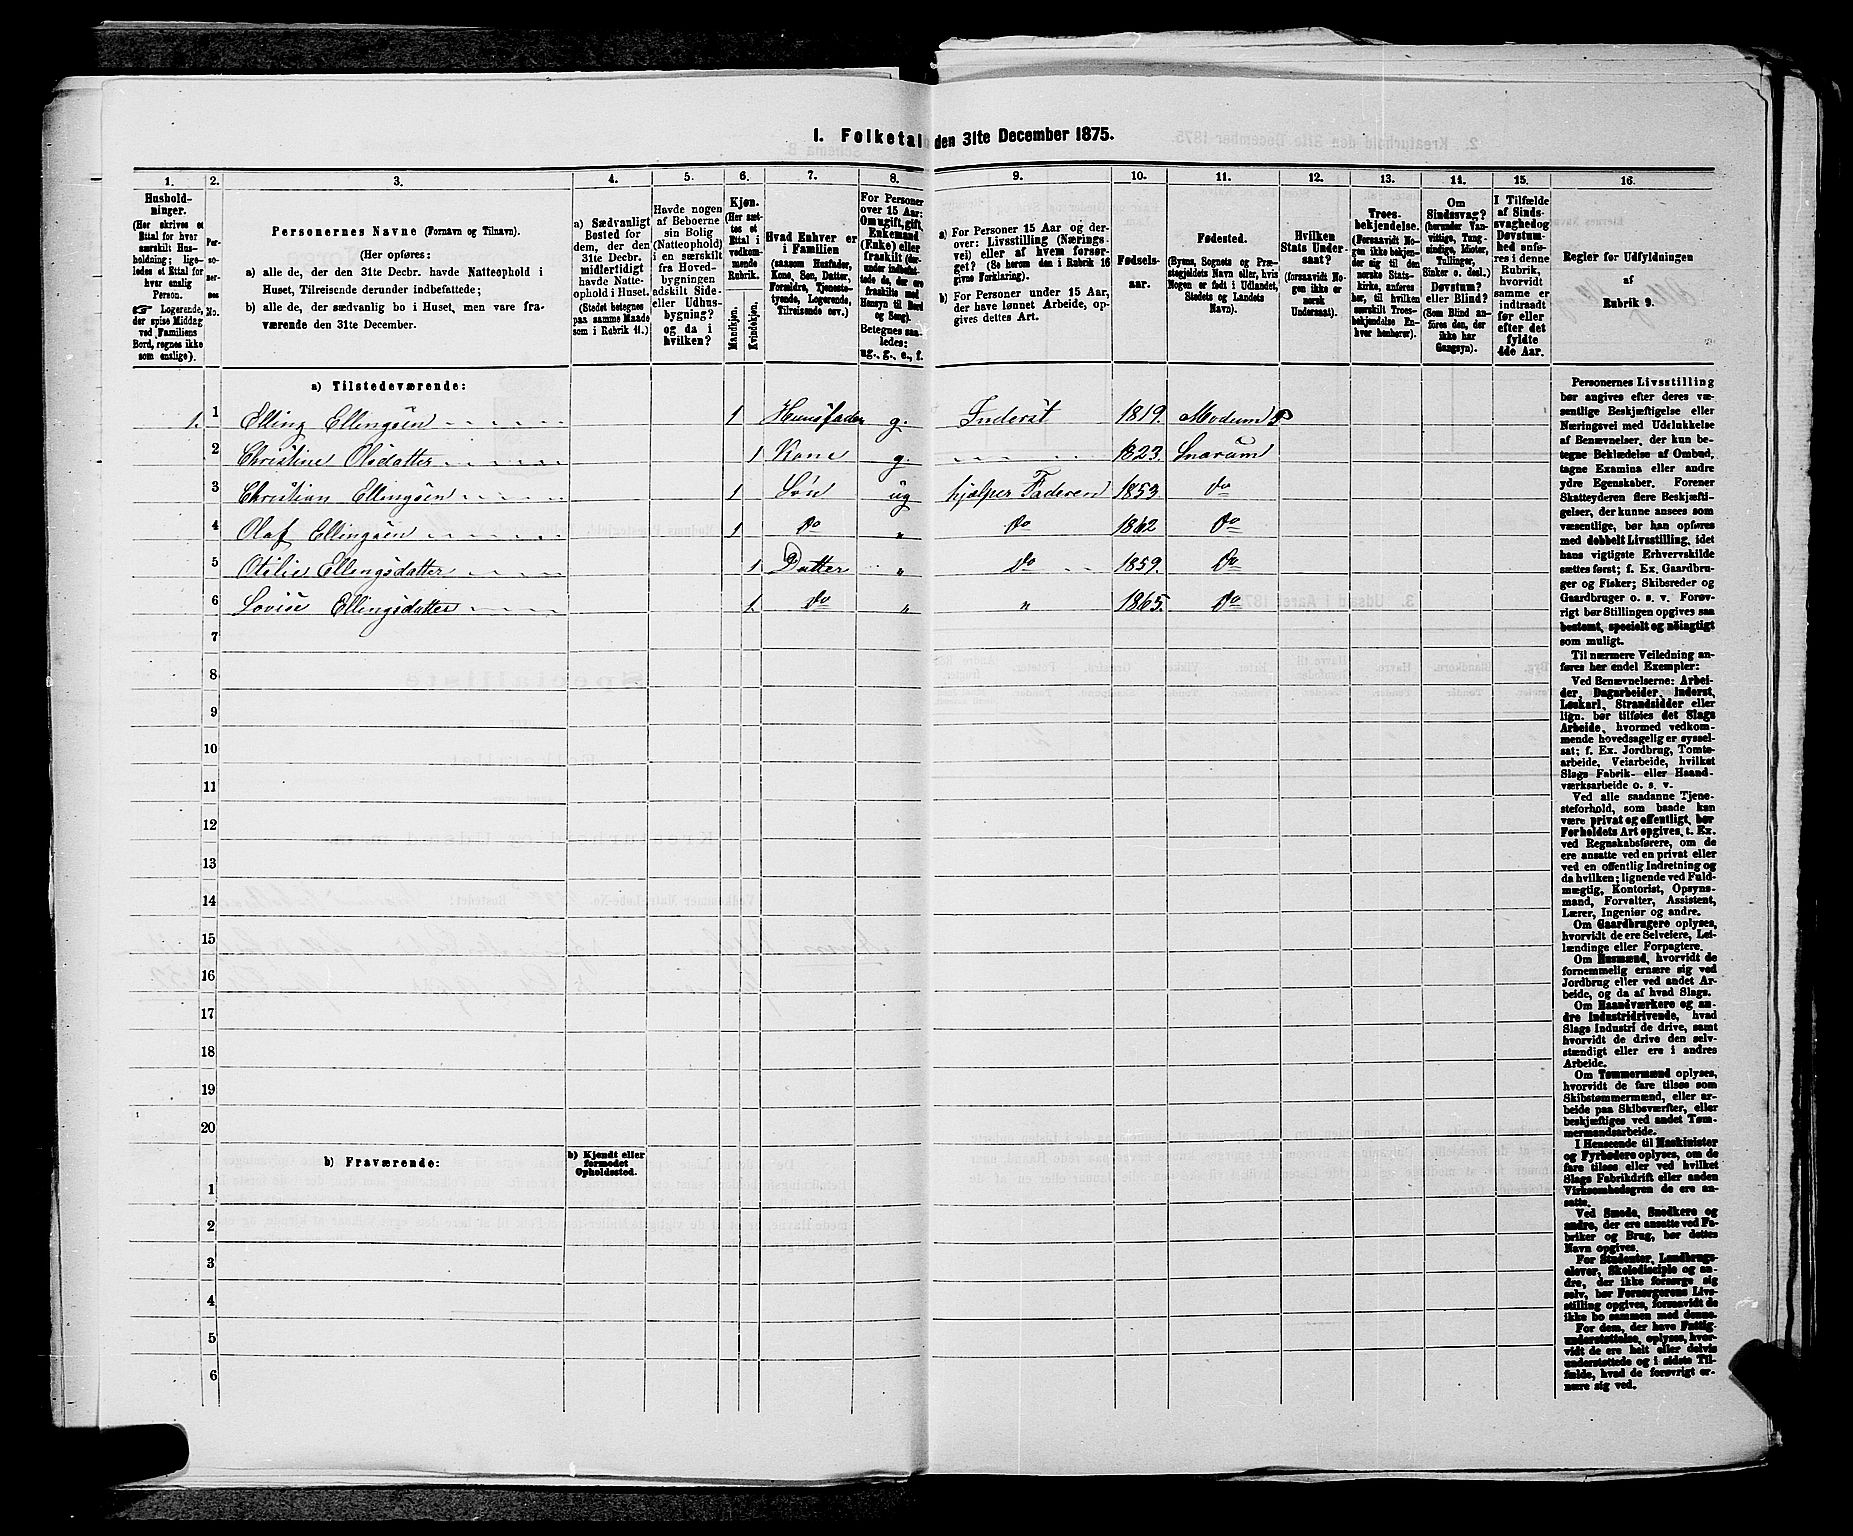 1. Folketal den 31te December 1875.
1. 2. 3. 4. 5. 6. 7. 8. 9. 10. 11. 12. 13. 14. 15. 16.
Husholdninger.
(Her skrives et
Ettal for hver
særskilt Husholdning; ligeledes et Ettal for
hver enslig
Person.
☞ Logerende,
der spise Middag
ved Familiens
Bord, regnes ikke
som enslige).
Personernes No.
Personernes Navne (Fornavn og Tilnavn).
(Her opføres:
a) alle de, der den 31te Decbr. havde Natteophold i
Huset, Tilreisende derunder indbefattede;
b) alle de, der sædvanlig bo i Huset, men vare fraværende den 31te December.
a) Sædvanligt
Bosted for
dem, der den
31te Decbr.
midlertidigt
havde Natteophold i Huset.
(Stedet betegnes
paa samme Maade
som i Rubrik 11.)
Havde nogen
af Beboerne
sin Bolig
(Natteophold)
i en særskilt
fra Hovedbygningen
adskilt Side-
eller Udhusbygning?
og da i
hvilken?
Kjøn.
(Her sættes et
Ettal i
vedkommende
Rubrik.
Mandkjøn.
Kvindekjøn.
Hvad Enhver er
i Familien
(saasom Husfader,
Kone, Søn, Datter,
Forældre, Tjenestetyende, Logerende,
Tilreisende osv.)
For Personer
over 15 Aar:
Om ugift, gift,
Enkemand
(Enke) eller
fraskilt
Betegnes saaledes:
ug., g., e., f.
a) For Personer 15 Aar og derover: Livsstilling (Næringsvei) eller af hvem forsørget? (Se herom den i Rubrik 16
givne Forklaring).
b) For Personer under 15 Aar,
der have lønnet Arbeide, opgives dettes Art.
Fødselsaar.
Fødested.
(Byens, Sognets og Præstegjeldets Navn eller, hvis
Nogen er født i Udlandet,
Stedets og Landets
Navn).
Hvilken
Stats Undersaat?
(forsaavidt Nogen ikke er
norsk
Undersaat).
Troesbekjendelse.
(Forsaavidt Nogen ikke bekjender sig til den
norske Statskirke, anføres
her, til hvilken
særskilt Troesbekjendelse Enhver henhører).
Om
Sindssvag?
(herunder Vanvittige, Tungsindige, Idioter,
Tullinger,
Sinker o. desl.)
Døvstum?
eller Blind?
(Som Blind anføres den, der
ikke har
Gangsyn).
I Tilfælde
af Sindssvaghed og
Døvstumhed anføres i denne
Rubrik,
hvorvidt
samme er
indtraadt
før eller
efter det
fyldte
4de Aar.
Regler for Udfyldningen
af
Rubrik 9.
a) Tilstedeværende:
1. 1 Elling Ellingsen 1 Huusfader g. Inderst 1819. Modum
2 Christine Olsdatter 1 Kone g. 1823. Snarum
3 Christian Ellingsen 1 Søn ug hjælper Faderen 1853. do
4 Olaf Ellingsen 1 do " do 1862 do
5 Otilie Ellingsdatter 1 Datter " do 1859. do
6 Lovise Ellingsdatter 1. do " " 1865. do
7
8
9
10
11
12
13
14
15
16
17
18
19
20
b) Fraværende:
b) Kjendt eller
formodet
Opholdssted.
1
2
3
4
5
6
Personernes Livsstilling
bør angives efter deres væsentlige Beskjæftigelse eller
Næringsvei med Udelukkelse
af Benævnelser, der kun betegne Beklædelse af Ombud,
tagne Examina eller andre
ydre Egenskaber. Forener
Skatteyderen flere Beskjæftigelser, der kunne ansees som
væsentlige, bør han opføres
med dobbelt Livsstilling, idet
hans vigtigste Erhvervskilde
sættes først; f. Ex. Gaardbruger og Fisker; Skibsreder og
Gaardbruger o. s. v. Forøvrigt bør Stillingen opgives saa
bestemt, specielt og nöiagtigt
som muligt.
Til nærmere Veiledning anføres her endel Exempler:
Ved Benævnelserne: Arbeider, Dagarbeider, Inderst,
Løskarl, Strandsidder eller
lign. bør tilføies det Slags
Arbeide, hvormed vedkommende hovedsagelig er sysselsat; f. Ex. Jordbrug, Tomtearbeide, Veiarbeide, hvilket
Slags Fabrik- eller Haandværksarbeide o. s. v.
Ved alle saadanne Tjenesteforhold, som baade kan
være privat og offentligt, bør
Forholdets Art opgives, t. Ex.
ved Regnskabsførere, om de
ere ansatte ved en privat eller
ved en offentlig Indretning og
da hvilken; lignende ved Fuldmægtig, Kontorist, Opsynsmand, Forvalter, Assistent,
Lærer, Ingeniør og andre.
Om Gaardbrugere oplyses,
hvorvidt de ere Selveiere, Leilændinge eller Forpagtere.
Om Husmænd, hvorvidt de
fornemmelig ernære sig ved
Jordbrug eller ved andet Arbeide, og da af hvad Slags.
Om Haandværkere og andre Industridrivende, hvad
Slags Industri de drive, samt
hvorvidt de drive den selvstændigt eller ere i andres
Arbeide.
Om Tømmermænd oplyses,
hvorvidt de fare tilsøs som
Skibstømmermænd, eller arbeide paa Skibsværfter, eller
beskjæftiges ved andet Tømmermandsarbeide.
I Henseende til Maskinister
og Fyrbødere oplyses, om de
fare tilsøs eller ved hvilket
Slags Fabrikdrift eller anden
Virksomhedsgren de ere ansatte.
Ved Smede, Snedkere og
andre, der ere ansatte ved Fabriker og Brug, bør dettes
Navn opgives.
For Studenter, Landbrugselever, Skoledisciple og andre, der ikke forsørge sig
selv, bør Forsørgerens Livsstilling opgives, forsaavidt de
ikke bo sammen med denne.
For dem, der have Fattigunderstøttelse, oplyses, hvorvidt de ere helt eller delvis
understøttede og i sidste Tilfælde, hvad de forøvrigt ernære sig ved.